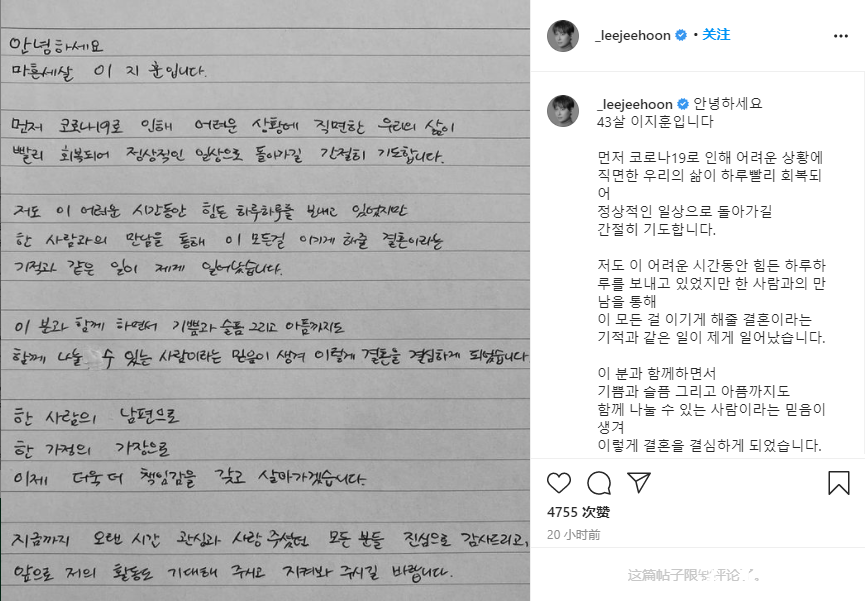 안녕하세요
마흔세살 이지훈입니다.
먼저 코로나19로 인해 어려운 상황에 직면한 우리의 삶이
빨리 회복되어 정상적인 일상으로 돌아가길 간절히 기도합니다.
저도 이 어려운 시간동안 힘든 하루하루를 보내고 있었지만
한 사람과의 만남을 통해 이 모든걸 이기게 해줄 결혼이라는
기적과 같은 일이 제게 일어났습니다.
이 분과 함께 하면서 기쁨과 슬픔 그리고 아픔까지도
함께 나눌 수 있는 사람이라는 믿음이 생겨 이렇게 결혼을 결심하게 되었습니다
한 사람의 남편으로
한 가정의 가장으로
이제 더욱 더 책임감을 갖고 살아가겠습니다.
지금까지 오랜 시간 관심과 사랑 주셨던 모든 분들 진심으로 감사드리고,
앞으로 저의 활동도 기대해 주시고 지켜봐 주시길 바랍니다.
_leejeehoon • 关注
_leejeehoon 안녕하세요
43살 이지훈입니다
먼저 코로나19로 인해 어려운 상황에
직면한 우리의 삶이 하루빨리 회복되
어
정상적인 일상으로 돌아가길
간절히 기도합니다.
저도 이 어려운 시간동안 힘든 하루하
루를 보내고 있었지만 한 사람과의 만
남을 통해
이 모든 걸 이기게 해줄 결혼이라는
기적과 같은 일이 제게 일어났습니다.
이 분과 함께하면서
기쁨과 슬픔 그리고 아픔까지도
함께 나눌 수 있는 사람이라는 믿음이
생겨
이렇게 결혼을 결심하게 되었습니다.
4755 次赞
20 小时前
这篇帖子限 评论 。